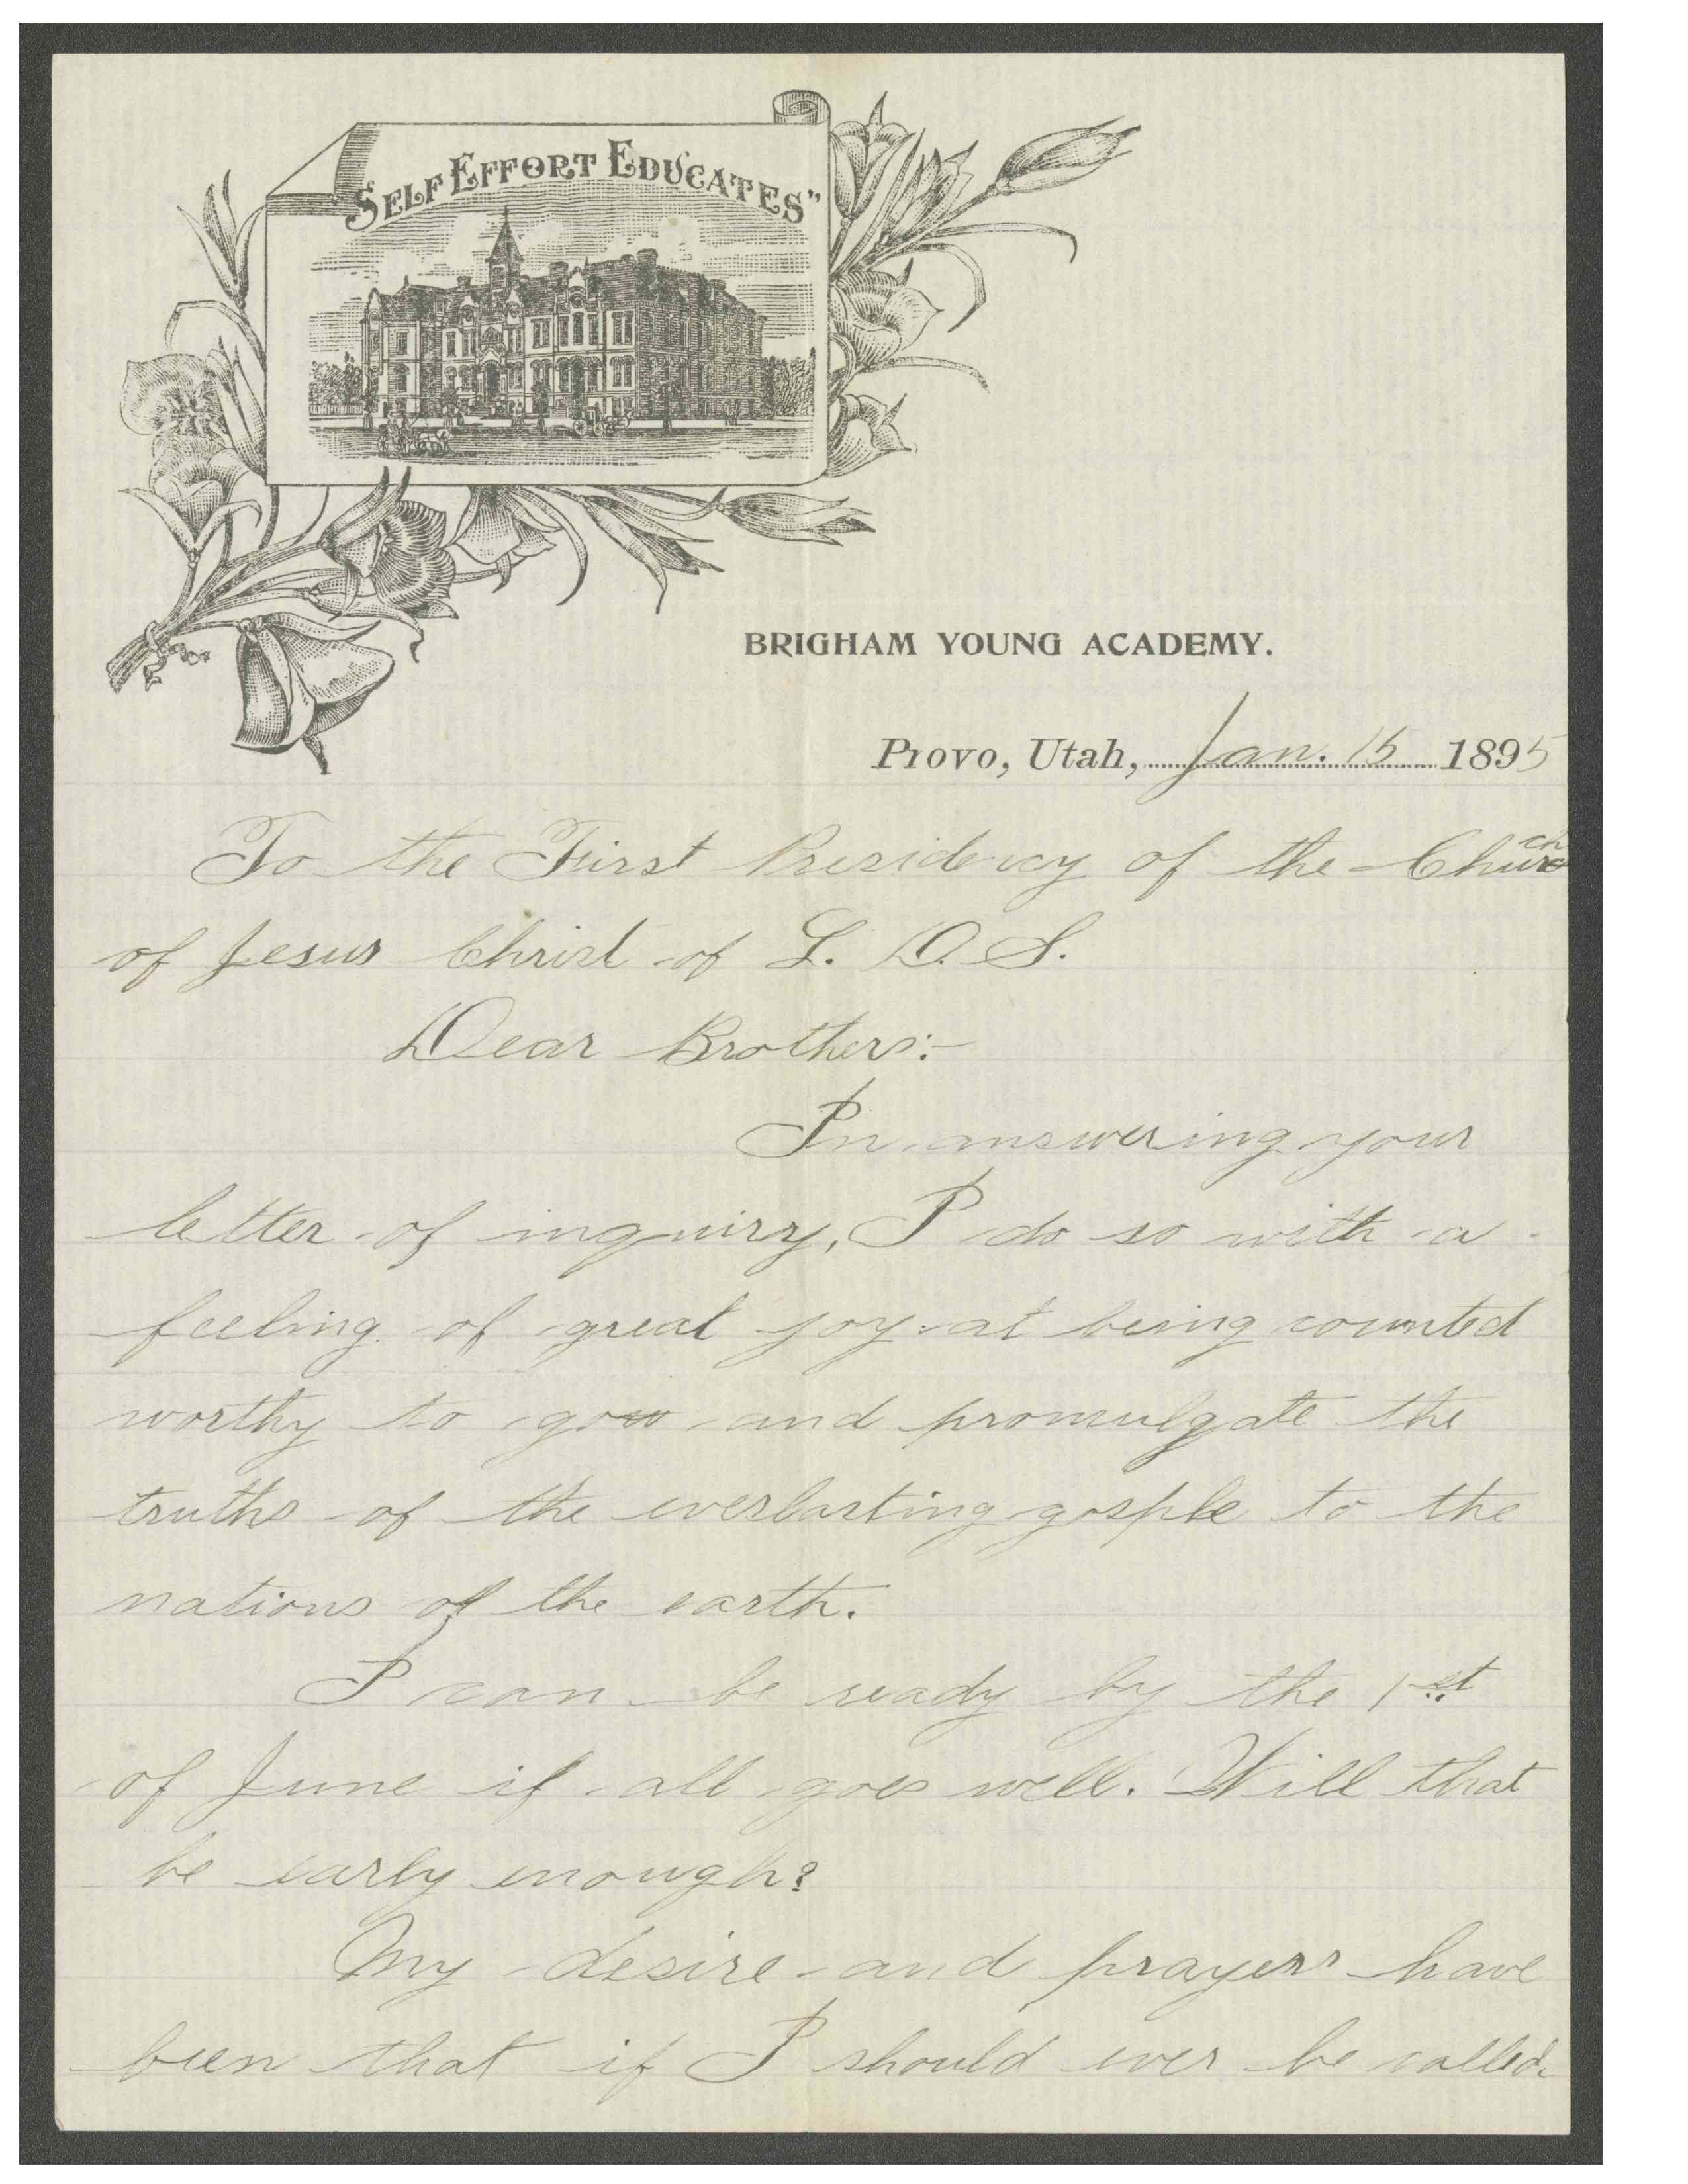 "SELF EFFORT EDUCATES"
BRIGHAM YOUNG ACADEMY.
Provo, Utah, Jan. 15 1895
To the First Presidency of the Church
of Jesus Christ of L. D. S.
Dear Brothers:-
In answering your
letter of inquiry, I do so with a
feeling of great joy at being counted
worthy to go and promulgate the
truths of the everlasting gosple to the
nations of the earth.
I can be ready by the 1st
of June if all goes well. Will that
be early enough?
My desire and prayers have
been that if I should ever be called